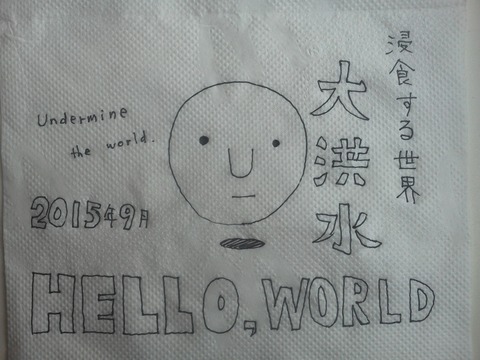 浸食する世界
大洪水
Undermine
the world.
2015年9月
HELLO, WORLD